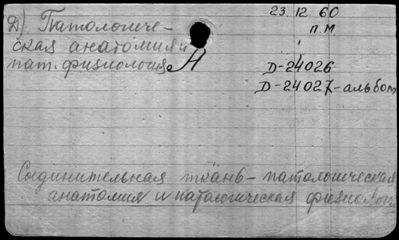 Д) Патологиче-
ская анатомия и
пат. физиология
А
23.12.60
п.м
D-24026
D-24027-альбом
Соединительная ткань - патологическая
анатомия и патологическая физиология